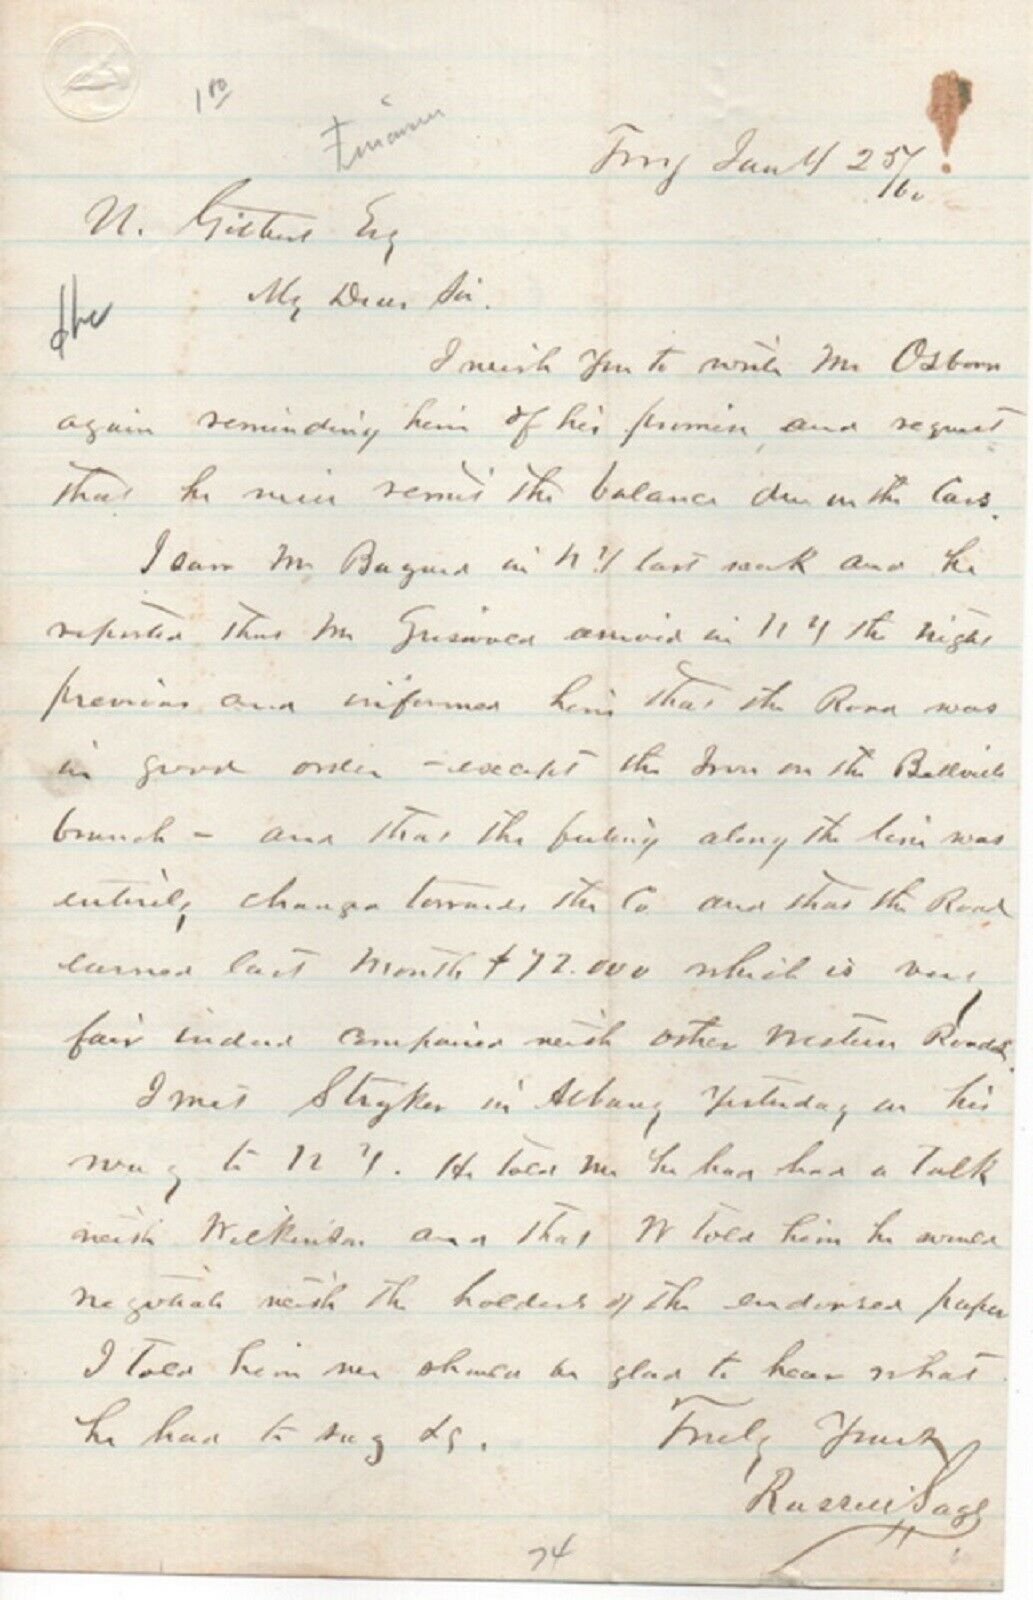 1 00
Troy Jany 25/60
U. Gilbert Esq
My Dear Sir.
I wish you to write Mr Osborn
again reminding him of his promise, and request
that he will remit the balance due on the Cars.
I saw Mr Bayard in N.Y last week and he
reported that Mr Griswold arrived in N Y the night
previous and informed him that the Road was
in good order - except the Iron on the Bellvile
branch - and that the feeling along the line was
entirely changed towards the Co and that the Road
earned last Month $72.000 which is very
fair indeed compaired with other Western Roads.
I met Stryker in Albany yesterday on his
way to N Y. He told me he had had a talk
with Wilkinson and that W told him he would
negotiate with the holders of the endorsed paper
I told him we should be glad to hear what
he had to say &c.
Truly Yours
Russell Sage
74